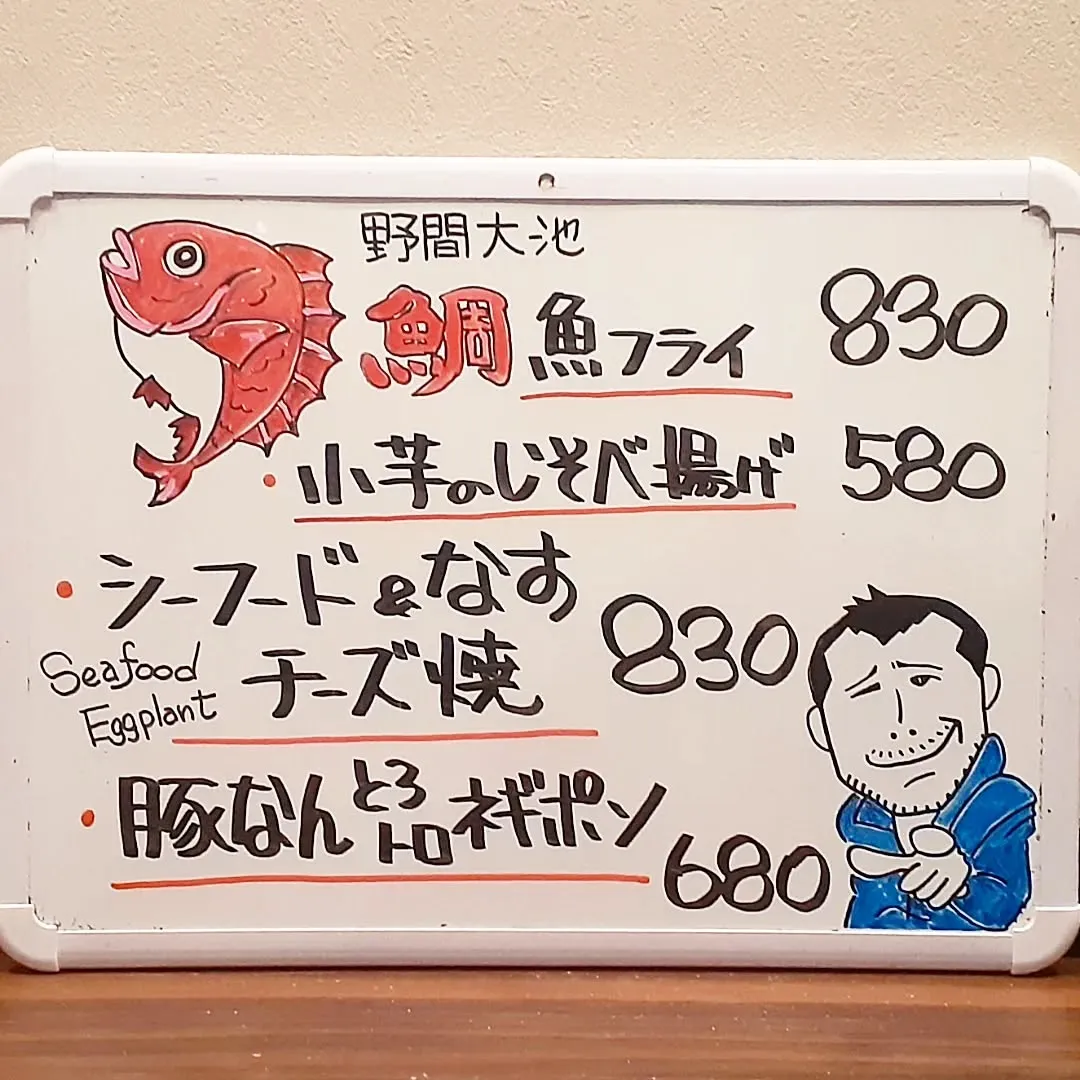 野間大池
鯛魚フライ 830
・小芋のじそべ揚げ 580
・シーフード&なす
チーズ焼 830
Seafood
Eggplant
・豚なんとろトロネギポン 680